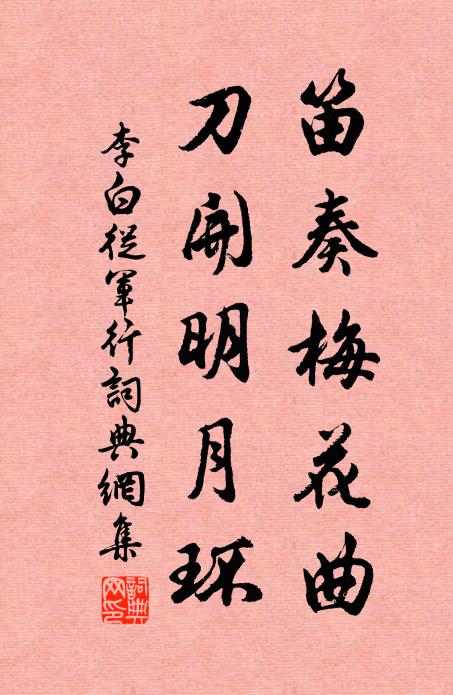 笛奏梅花曲
刀開明月环
李白從軍行詞典網集
詞典网印